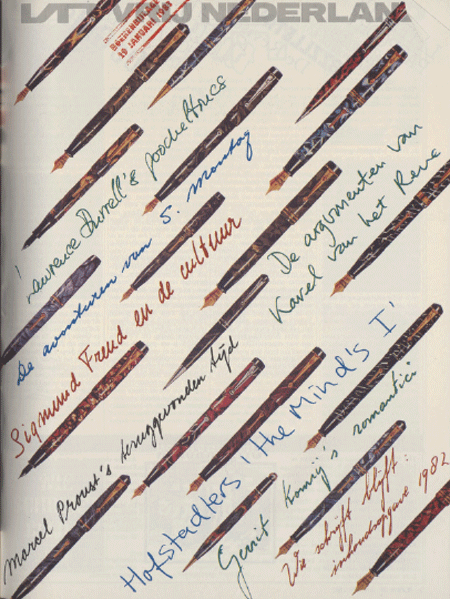 VRIJ NEDERLAND
BOEKENBIJLAGE
29 JANUARI 1983
'Lawrence Durrell's goocheltrucs
De avonturen van S. Montag
De argumenten van
Karel van het Reve
Sigmund Freud en de cultuur
Marcel Proust's teruggevonden tijd
Hofstadters 'the Mind's I'
Gerrit Komrij's romantici
Wie schrijft blijft:
inhoudsopgave 1982